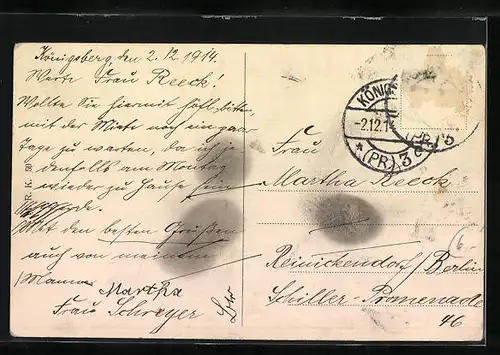 Königsberg den 2.12.1914.
Werte Frau Reeck!
Wollen Sie hiermit höfl. bitten,
mit der Miete noch ein paar
Tage zu warten, da ich je
denfalls am Montag
wieder zu Hause sein
werde.
Mit den besten Grüßen
auch von meinem
Mann
Martha
Frau Schreyer
R. K.
KÖNIG
-2.12.14
*(PR.) 3 c
(PR.) 3
Frau
Martha Reeck
Reinickendorf/Berlin
Schiller-Promenade
46
6,-